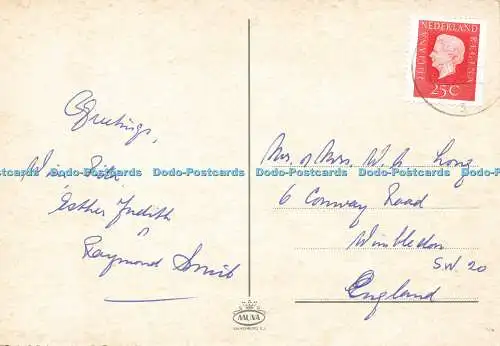 JULIANA
NEDERLAND
REGINA
25C
Greetings,
Esther Judith
Raymond
Mr. & Mrs. W. G. Long
6 Conway Road
Wimbledon
S.W. 20
England
MUVA
Dodo-Postcards Dodo-Postcards Dodo-Postcards Dodo-Postcards Dodo-Postcards